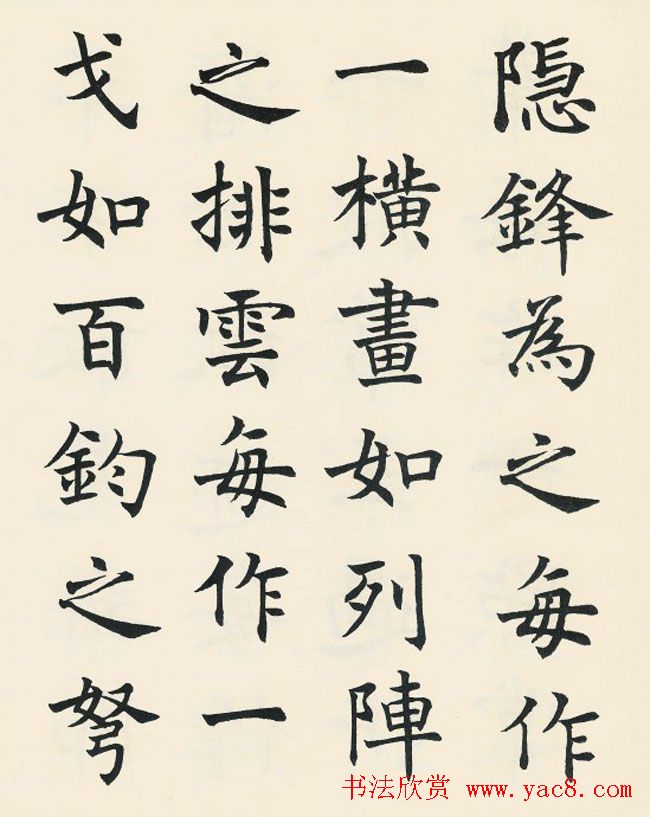 隱鋒為之每作
一橫畫如列陣
之排雲每作一
戈如百鈞之弩
书法欣赏 www.yac8.com